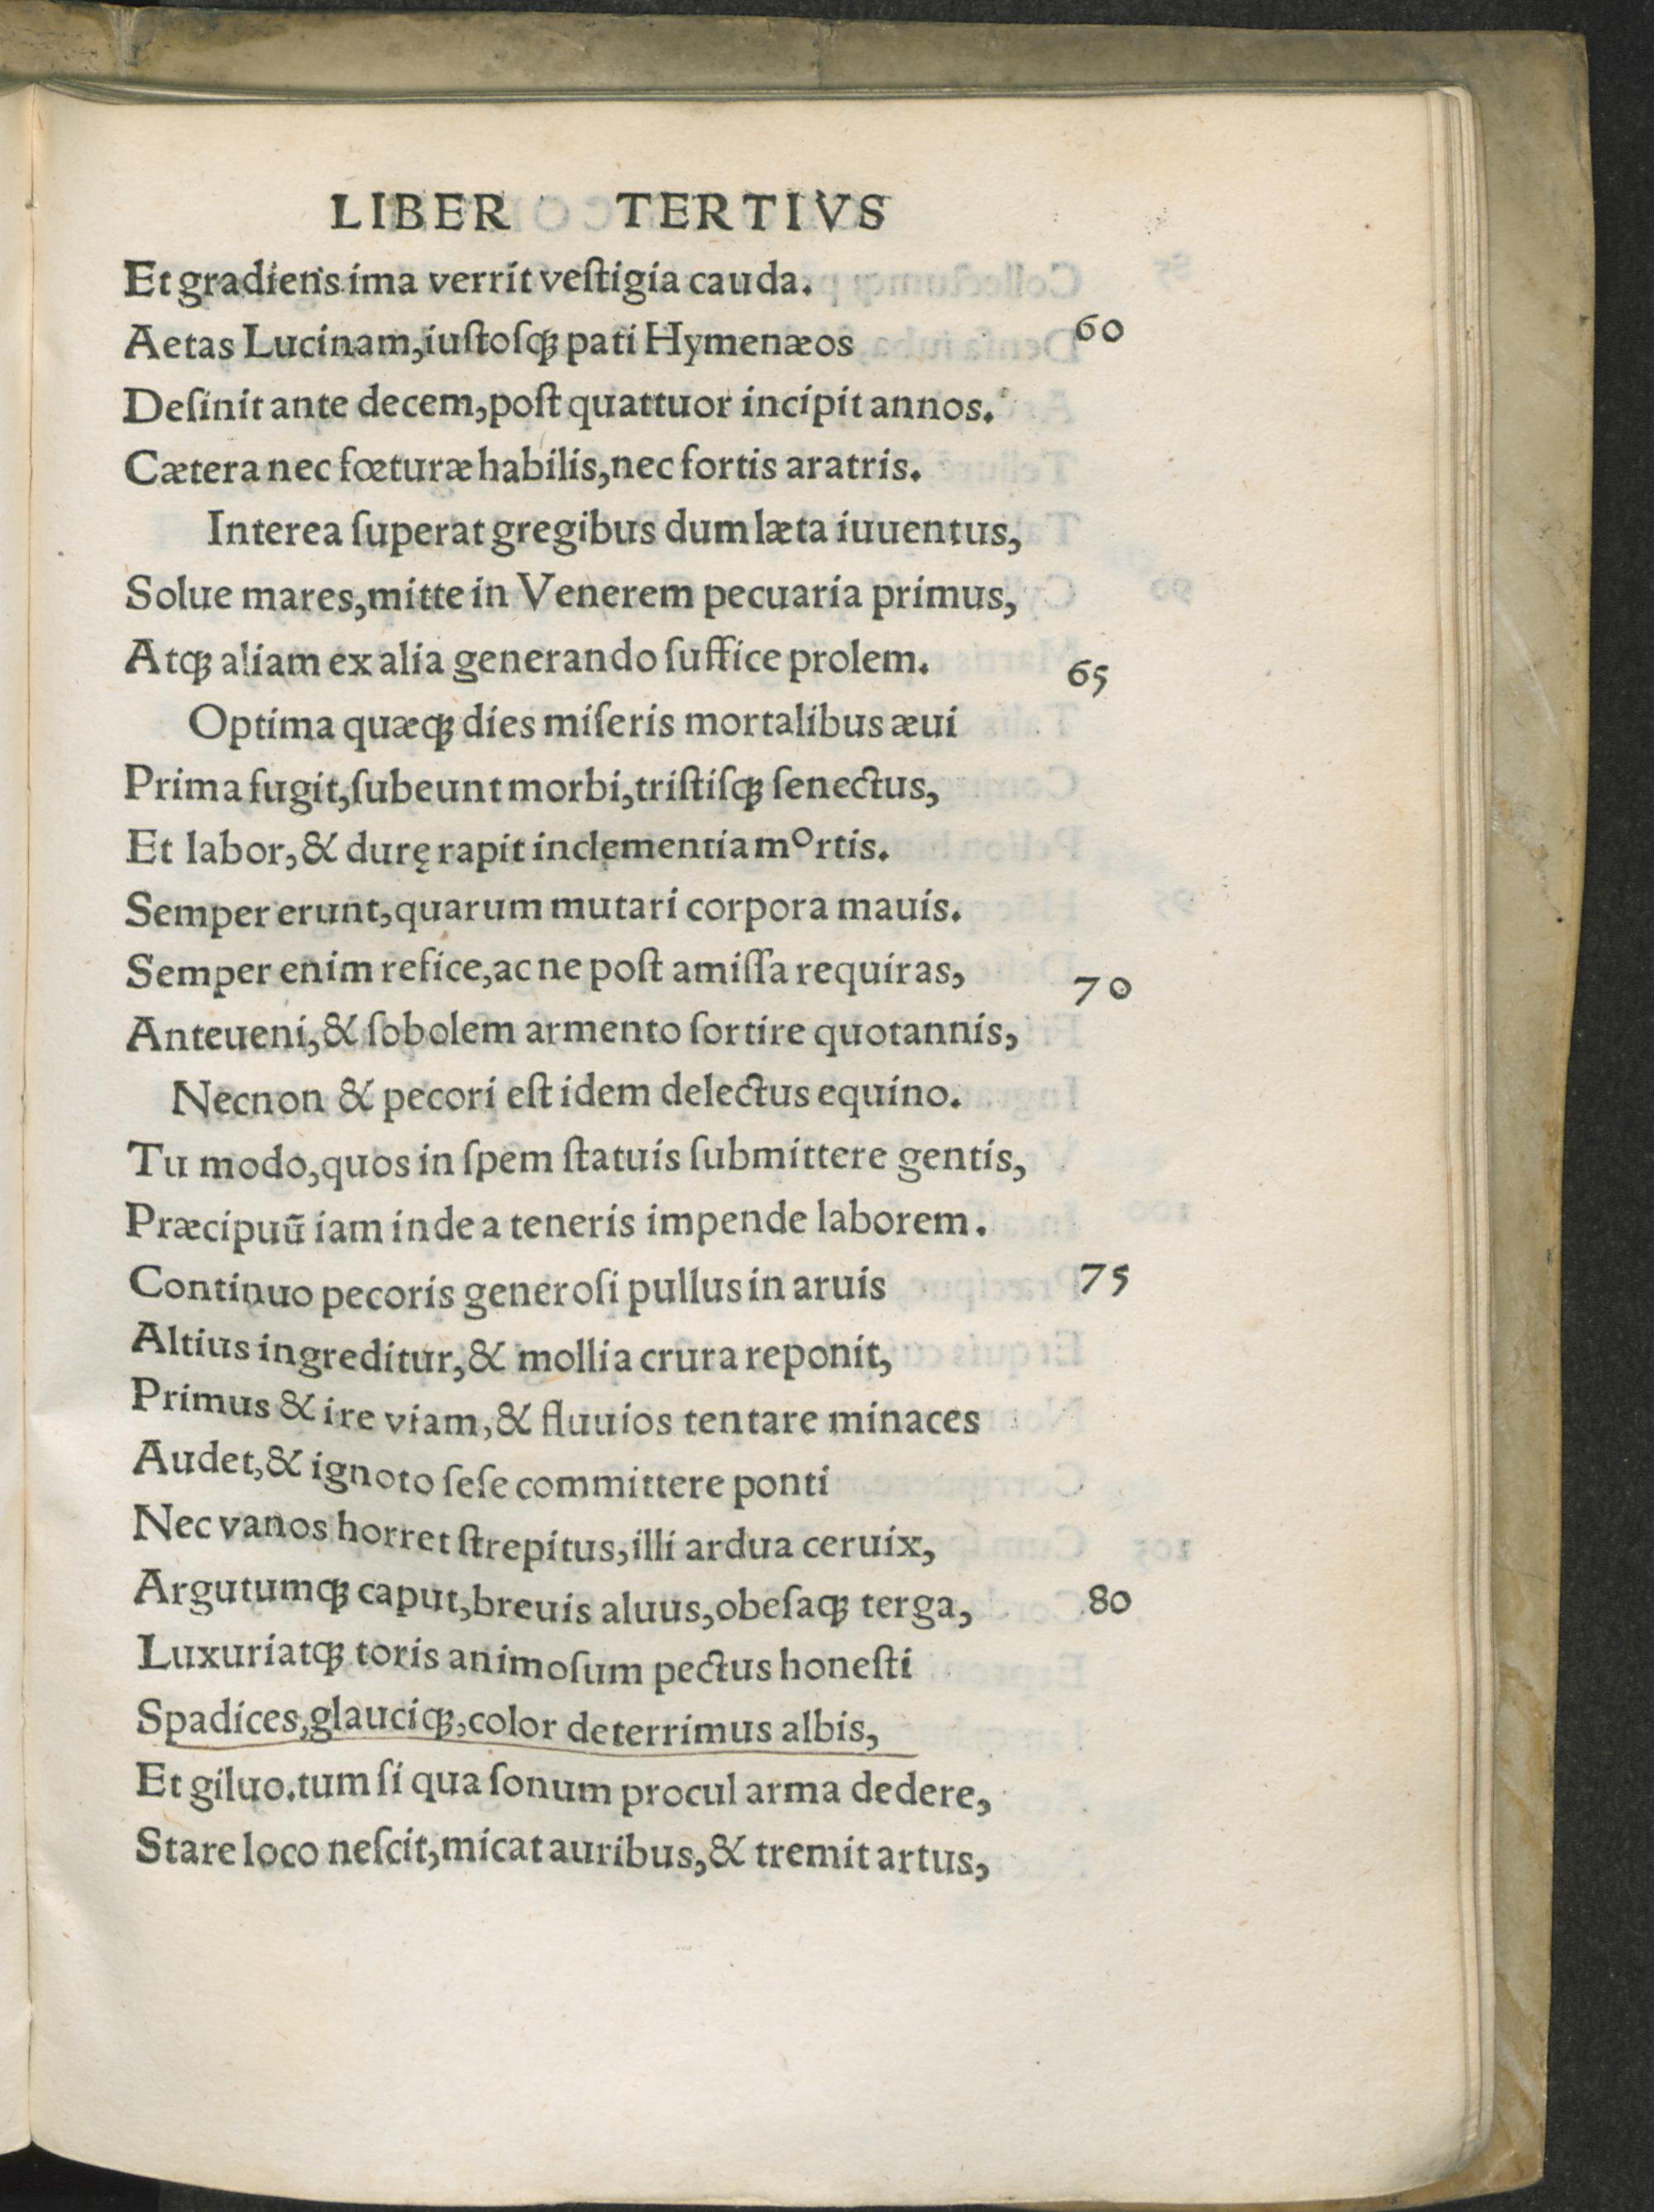 LIBER TERTIVS
Et gradiens ima verrit veſtigia cauda.
Aetas Lucinam,iuſtoſqꝫ pati Hymenæos 60
Deſinit ante decem,poſt quattuor incipit annos.
Cætera nec fœturæ habilis,nec fortis aratris.
Interea ſuperat gregibus dum læta iuuentus,
Solue mares,mitte in Venerem pecuaria primus,
Atqꝫ aliam ex alia generando ſuffice prolem. 65
Optima quæqꝫ dies miſeris mortalibus æui
Prima fugit,ſubeunt morbi,triſtiſqꝫ ſenectus,
Et labor,& durę rapit inclementia mortis.
Semper erunt,quarum mutari corpora mauis.
Semper enim refice,ac ne poſt amiſſa requiras, 70
Anteueni,& ſobolem armento ſortire quotannis,
Necnon & pecori eſt idem delectus equino.
Tu modo,quos in ſpem ſtatuis ſubmittere gentis,
Præcipuũ iam inde a teneris impende laborem.
Continuo pecoris generoſi pullus in aruis 75
Altius ingreditur,& mollia crura reponit,
Primus & ire viam,& fluuios tentare minaces
Audet,& ignoto ſeſe committere ponti
Nec vanos horret ſtrepitus,illi ardua ceruix,
Argutumqꝫ caput,breuis aluus,obeſaqꝫ terga, 80
Luxuriatqꝫ toris animoſum pectus honeſti
Spadices,glauciqꝫ,color deterrimus albis,
Et giluo.tum ſi qua ſonum procul arma dedere,
Stare loco neſcit,micat auribus,& tremit artus,